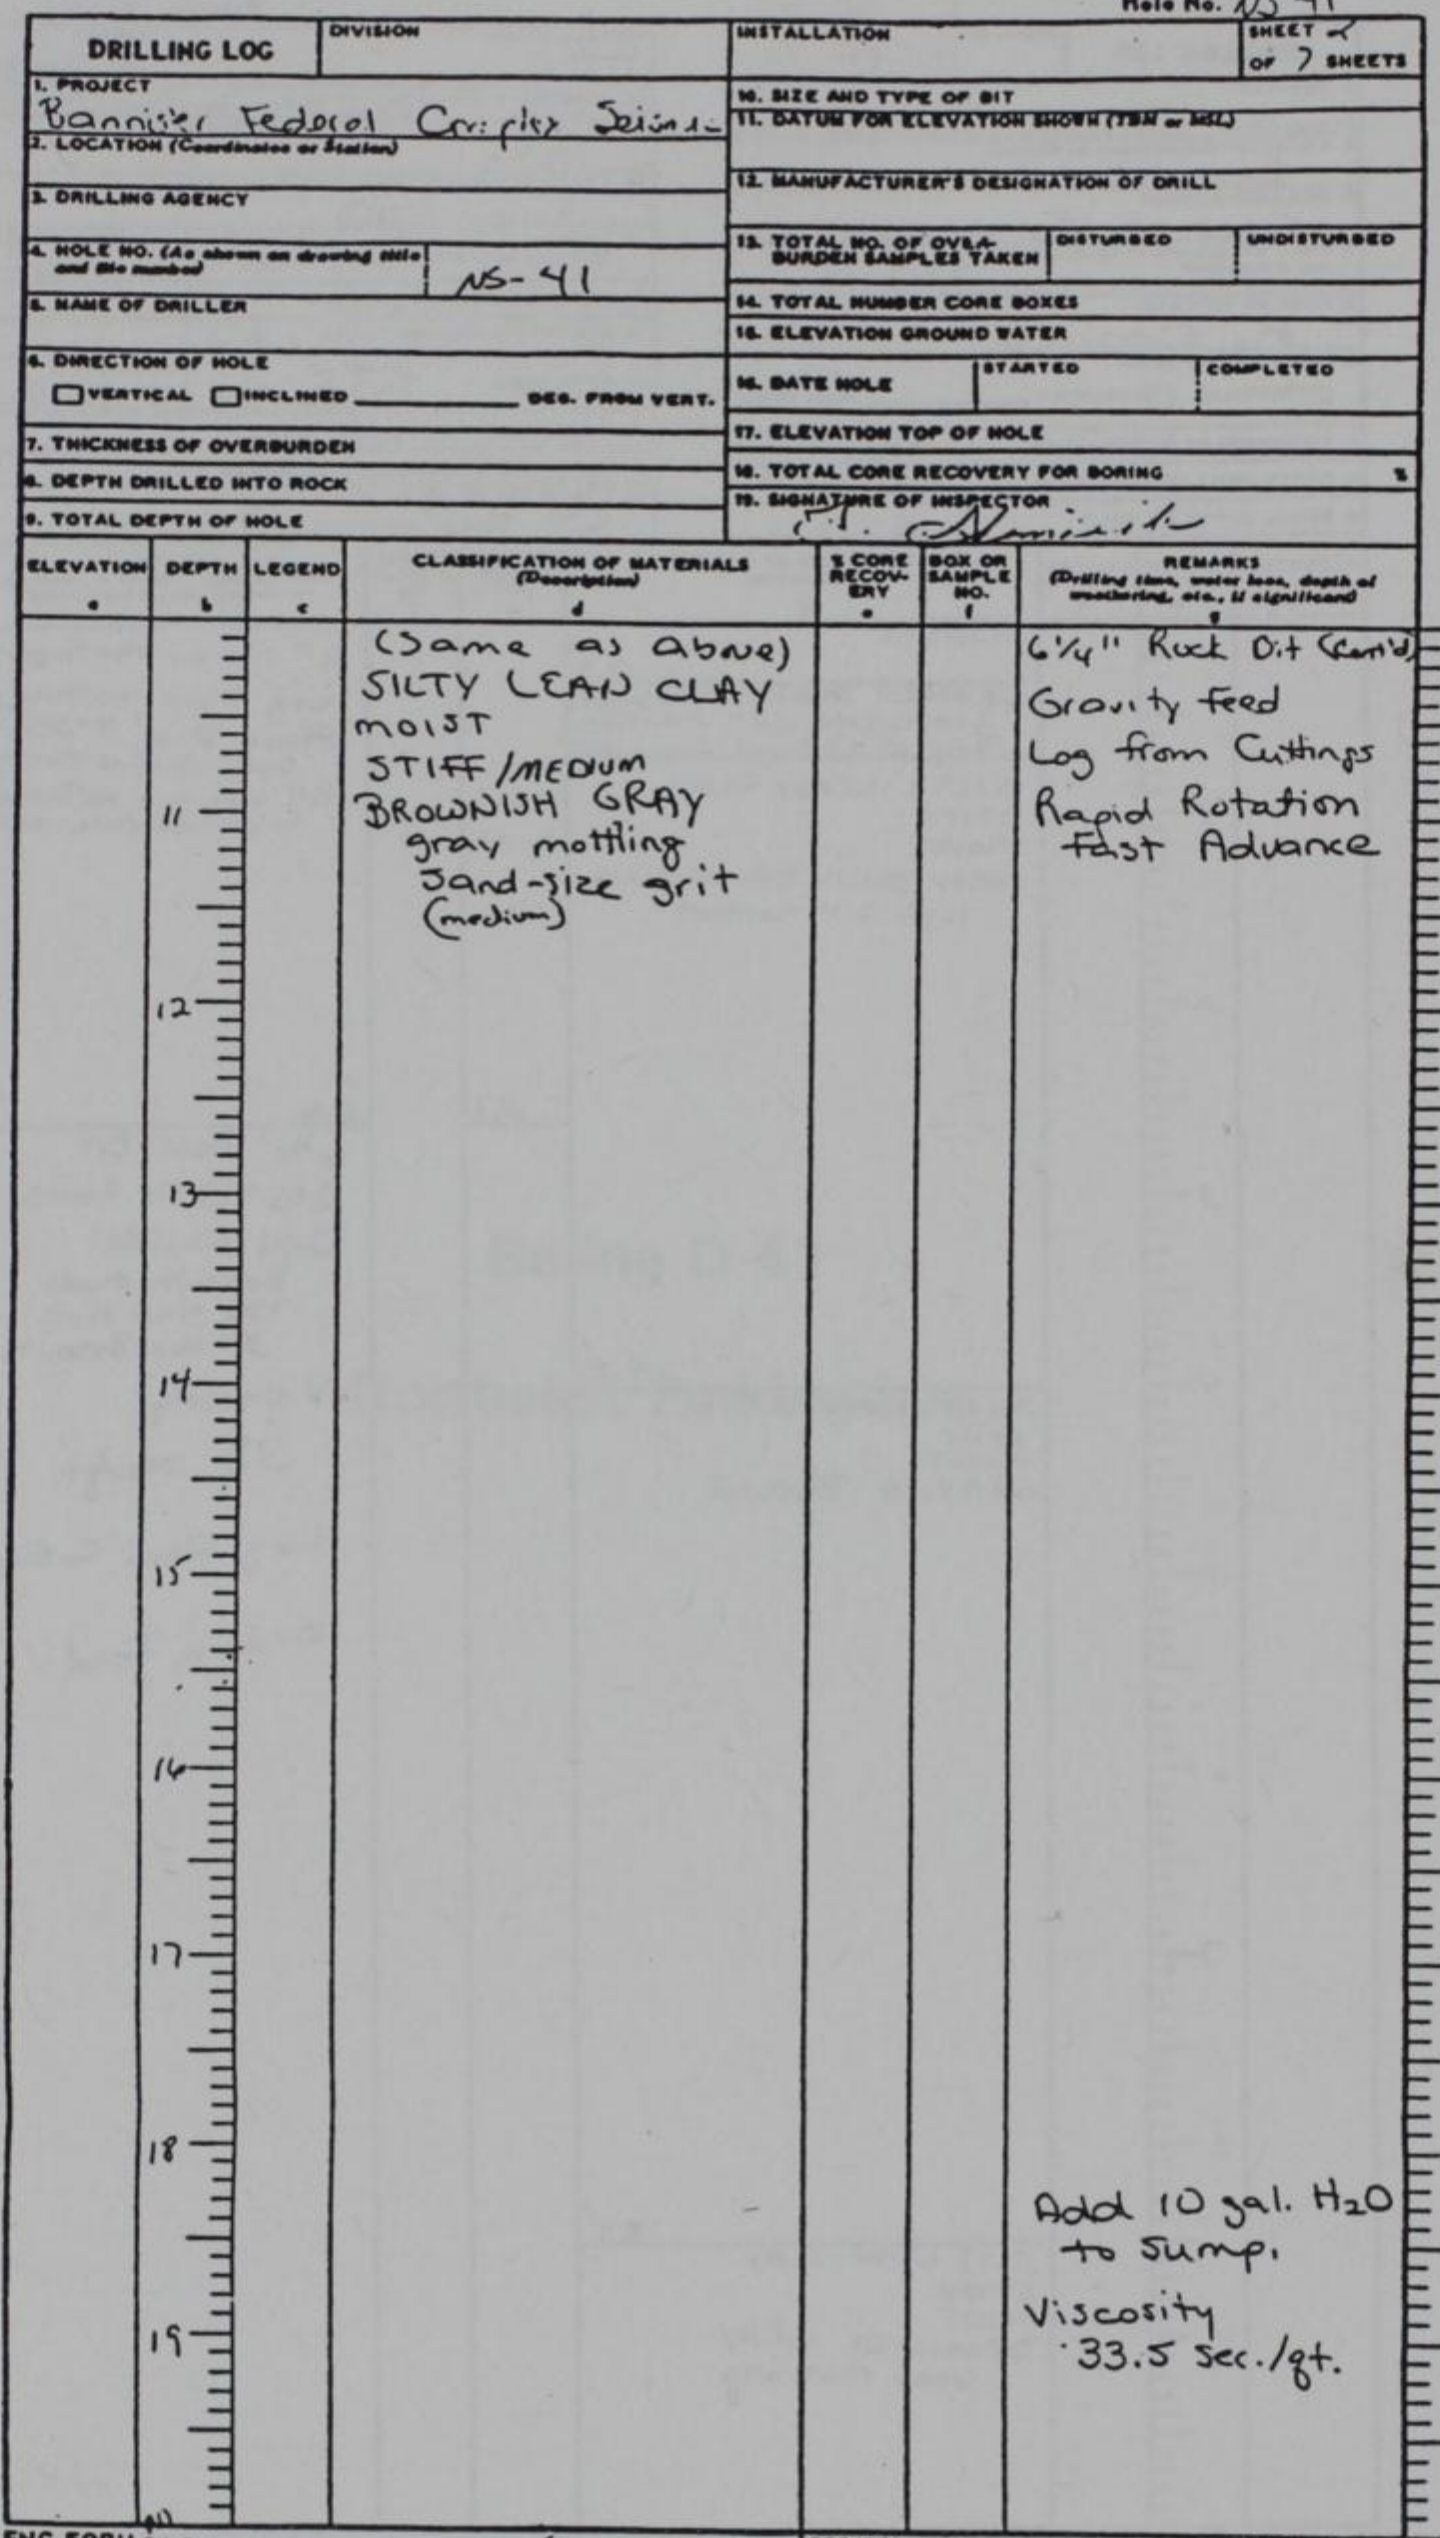 Hole No. NS-41
DRILLING LOG
DIVISION
INSTALLATION
SHEET 2
OF 7 SHEETS
1. PROJECT
Bannister Federal Complex
2. LOCATION (Coordinates or Station)
3. DRILLING AGENCY
4. HOLE NO. (As shown on drawing title
and file number)
NS-41
5. NAME OF DRILLER
6. DIRECTION OF HOLE
VERTICAL INCLINED DEG. FROM VERT.
7. THICKNESS OF OVERBURDEN
8. DEPTH DRILLED INTO ROCK
9. TOTAL DEPTH OF HOLE
10. SIZE AND TYPE OF BIT
11. DATUM FOR ELEVATION SHOWN (TBM or MSL)
12. MANUFACTURER'S DESIGNATION OF DRILL
13. TOTAL NO. OF OVER-
BURDEN SAMPLES TAKEN
DISTURBED
UNDISTURBED
14. TOTAL NUMBER CORE BOXES
15. ELEVATION GROUND WATER
16. DATE HOLE
STARTED
COMPLETED
17. ELEVATION TOP OF HOLE
18. TOTAL CORE RECOVERY FOR BORING %
19. SIGNATURE OF INSPECTOR
ELEVATION
a
DEPTH
b
LEGEND
c
CLASSIFICATION OF MATERIALS
(Description)
d
% CORE
RECOV-
ERY
e
BOX OR
SAMPLE
NO.
f
REMARKS
(Drilling time, water loss, depth of
weathering, etc., if significant)
g
(Same as above)
SILTY LEAN CLAY
MOIST
STIFF/MEDIUM
BROWNISH GRAY
gray mottling
sand-size grit
(medium)
6 1/4" Rock Bit (Cont'd)
Gravity feed
Log from Cuttings
Rapid Rotation
Fast Advance
11
12
13
14
15
16
17
18
Add 10 gal. H2O
to sump.
Viscosity
33.5 sec./qt.
19
20
ENG FORM